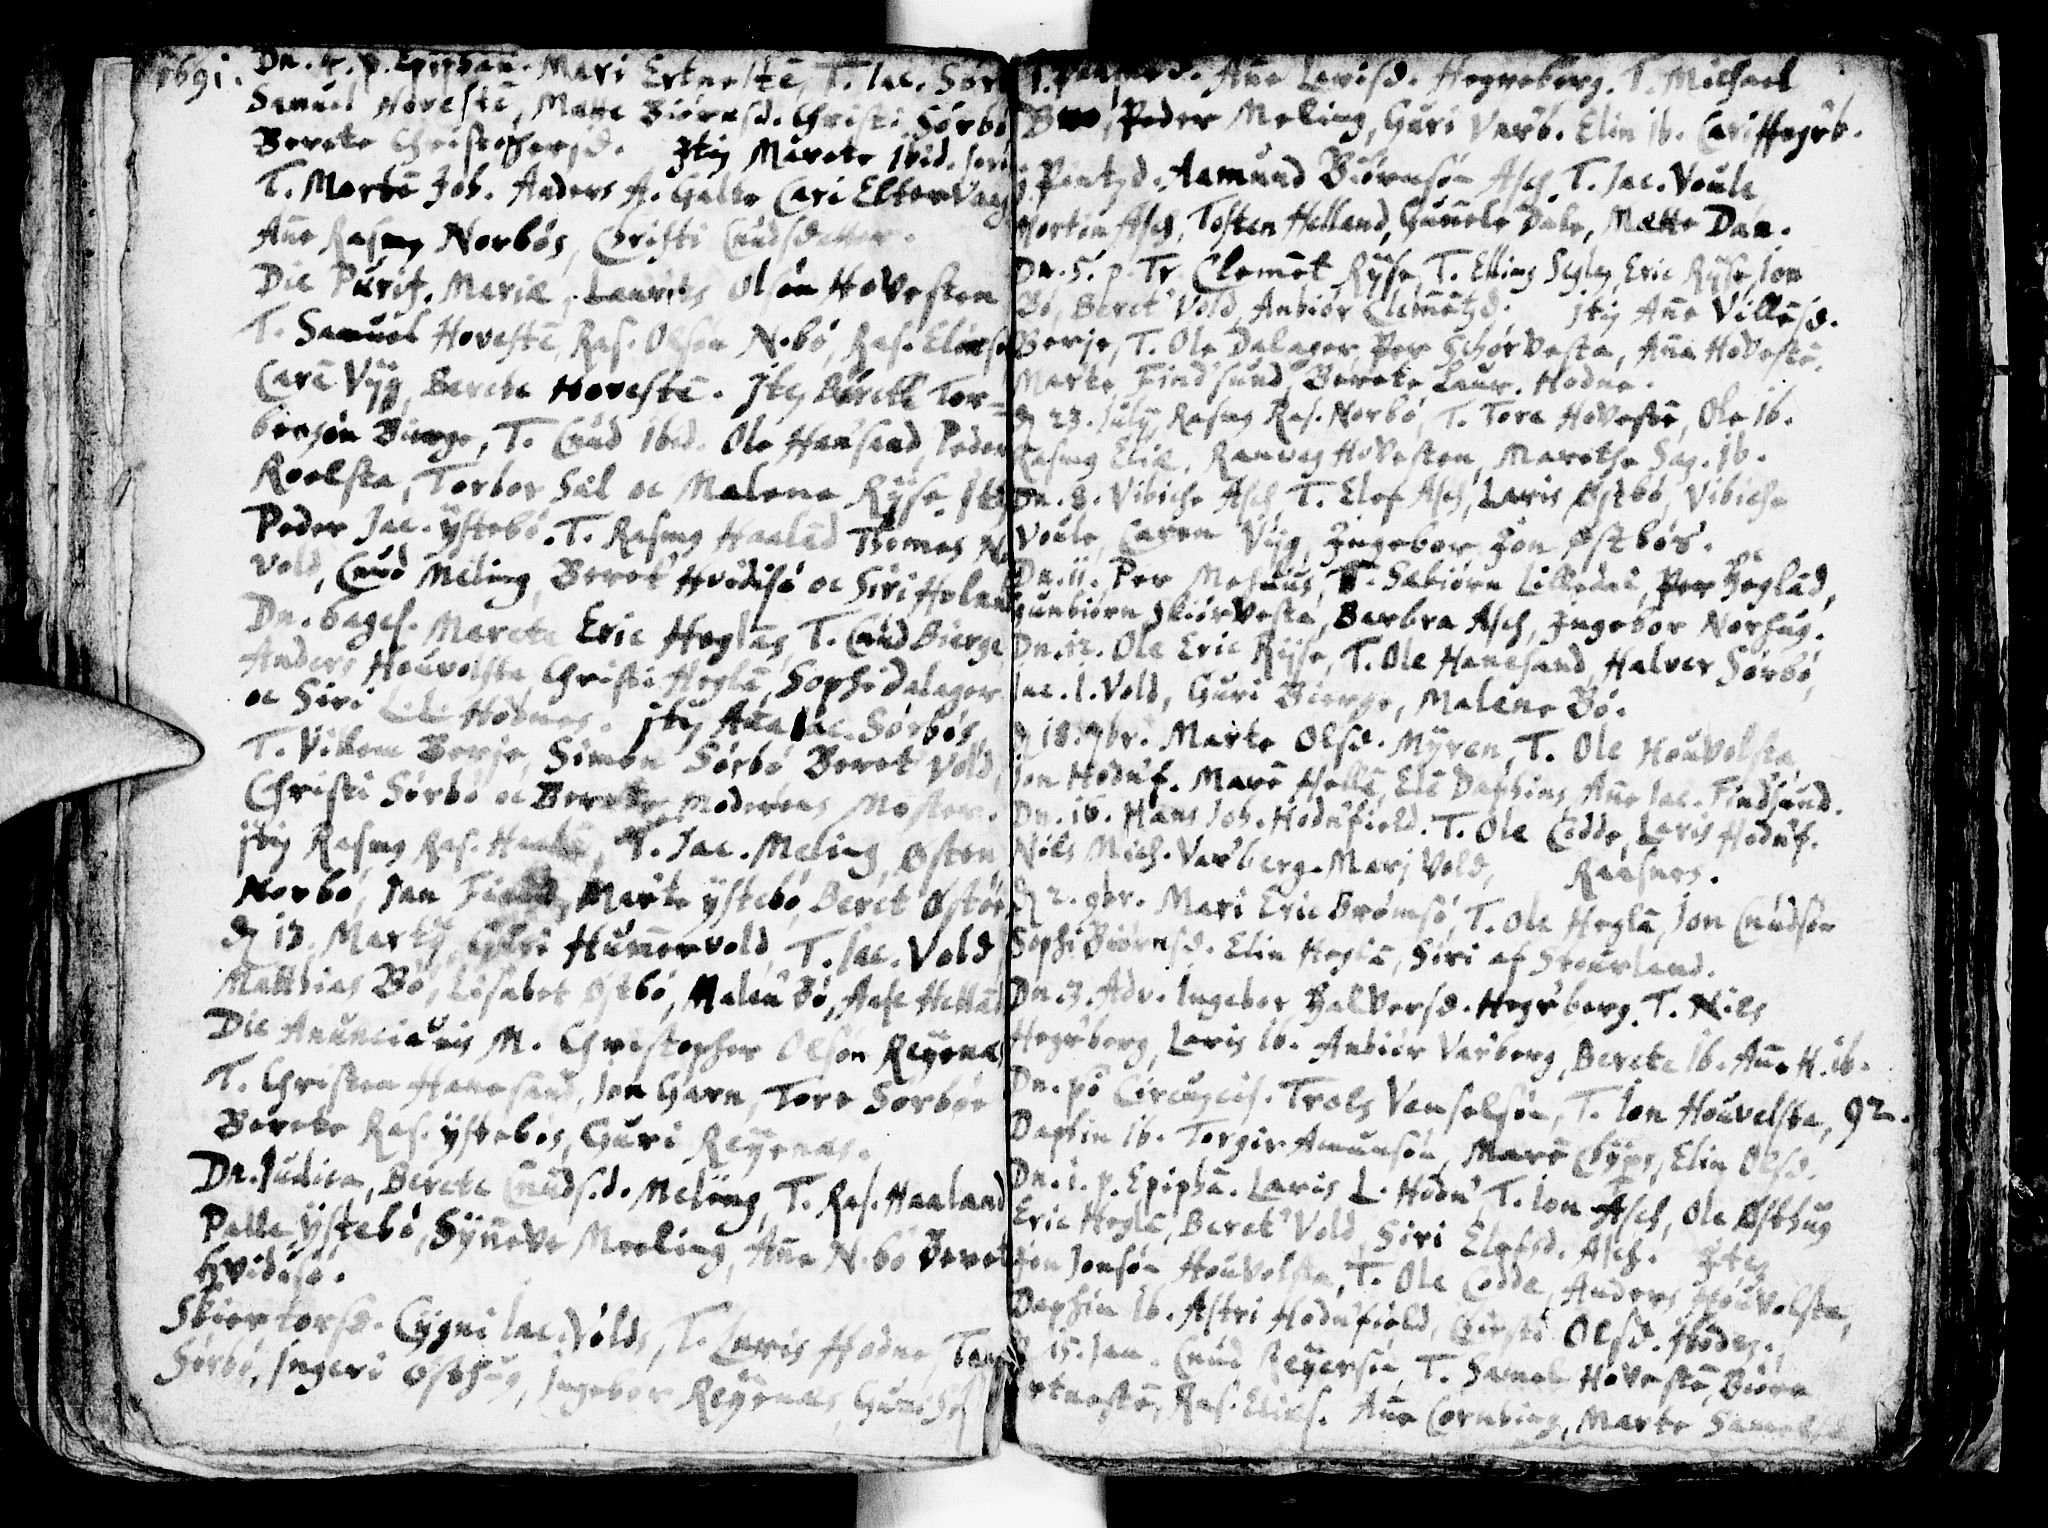 1691. Dn. 4. p. Epiphan. Mari Ertnestē, T. Jac. Sør
Samuel Hovestē, Matte Biørnsd. Christi Sørbø
Berete Christophersd. Itē Marete Ibid.
T. Mortē Joh. Anders A. Galte Cari Eltervaag
Añe Rasmus Norbøs, Christi Cnudsdatter.
Die Purif. Mariæ, Laurits Olsøn Hovesten
T. Samuel Hovestē, Ras. Olsøn N.bø, Ras. Elies
Carē Vÿg, Berete Hovestē. Itē Berete Tor-
bensøn Bierge, T. Cnud Ibid. Ole Hansand, Peder
Roelsta, Torbor Sal oc Malene Rÿse. Itē
Peder Jac. Ystebø. T. Rasmus Haaland Thomes N
Vold, Cnud Meling, Beret Hvidisø oc Siri Heland
Dn. 6ages. Marete Eric Heglās, T. Cnud Bierge
Anders Houvolsta Christi Heglā, Sophi Dalager
oc Siri L. L. Hodnes. Itē Aña Jac. Sørbøs,
T. Villem Berje, Simon Sørbø Beret Vold,
Christi Sørbø oc Berete Moderens Moster.
Itē Rasmus Ras. , T. Jac. Meling, Østen
Norbø, Jan , Marte Ystebø, Beret Østbø
d 13. Martÿ, Guri Humervold, T. Jac. Vold
Matthias Bø, Lisabet Østbø, Malen Bø, Aase Hellā
Die Anunciātis M. Christopher Olsøn Reÿenæs
T. Christen Hanesand, Jon Garn, Tore Sørbøe
Berete Ras. Ystebøs, Guri Reÿenæs.
Dn. Judica, Berete Cnuds.d. Meling, T. Ras. Haaland
Palle Ystebø, Sÿnneve Meeling, Añe N.bø Beret
Hvidisø.
Skiertorsd. Cÿgni Jac. Volds, T. Laris Hodne,
Sørbø, Ingeri Østhus, Ingebor Reÿenæs,
Añe Larisd. Hegreberg. T. Michael
Peder Meling, Guri Varb. Elin ib. Cari Hegrb.
Pentzd. Aamund Biørnsøn Asch, T. Jac. Voule
Morten Asch, Tosten Helland, Guñele Dale, Mætte Dan.
Dn. 5. p. Tr. Clemēt Rÿse, T. Elling Sigley, Eric Rÿse Jon
Bø, Beret Vold, Anbiør Clemētzd. Itē Añe Villēsd.
Berje, T. Ole Dalager Per Schørvesta, Aña Hovestē.
Marte Findsund, Berete Laur. Hodne.
d 23. Julÿ Rasmus Ras. Norbø, T. Tora Hovestē, Ole ib.
Rasmus Eliæ, Ranvag Hovesten, Marethe Sag. ib.
Dn. 8. Vibiche Asch, T. Elef Asch, Laris Østbø, Vibiche
Voule, Caren Vÿg, Ingebor Jon Østbøs.
Dn. 11. Per , T. Sæbiørn Lilledal, Per Høglād,
Gunbiørn Skiørvesta, Barbra Asch, Ingebor Norhus.
Dn. 12. Ole Eric Rÿse, T. Ole Hanesand, Halver Sørbø,
Jac. i. Vold, Guri Bierge, Malene Bø.
d 18. 7br. Marte Olsd. Mÿren, T. Ole Houvolsta
Jon Hodnf. Marē Hellā, Elē Daphins Añe Jac. Findsund.
Dn. 16. Hans Joh. Hodnfield. T. Ole Codde, Laris Hodnf.
Nils Mich. Varberg. Mari Vold, Raasnes.
d 2. 9br. Mari Eric Brømsø, T. Ole Heglā, Jon Cnudsøn
Sophi Biørnsd. Elin Heglā, Siri af Stourland.
Dn. 3. Adv. Ingebor Halversd. Hegrberg. T. Nils
Hegrberg, Laris ib. Anbiør Varberg, Berete ib. Añe H. ib.
Dn. po Circumcis. Trols Venselsøn, T. Jon Houvelsta, 92.
Daphin ib. Torgir Amunsøn, Marē Cÿps, Elin Olsd.
Dn. 1. p. Epiphā. Laris L. Hodn, T. Jon Asch, Ole Østhus
Eric Heglā, Beret Vold, Siri Elefsd. Asch. Itē
Jon Jonsøn Houvolsta, T. Ole Codde, Anders Houvolsta,
Daphin ib. Astri Hodnfield, Christi Olsd. Hodnes.
d 15. Jan. Cnud Reÿersøn, T. Samel Hovestē, Biørn
Ertnestē, Ras. Elies. Añe Cornbing, Marte Samelsd